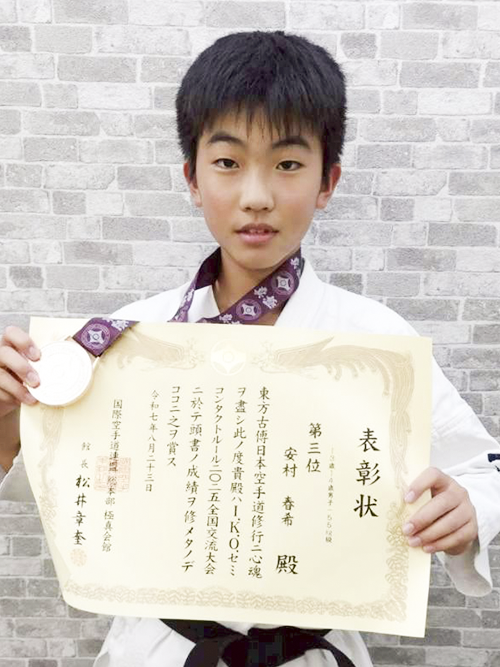 表彰状
第三位
安村 春希 殿
東方古傳日本空手道修行ニ心魂
ヲ盡シ此ノ度貴殿ハI.K.O.セミ
コンタクトルール二〇二五全国交流大会
ニ於テ頭書ノ成績ヲ修メタノデ
ココニ之ヲ賞ス
令和七年八月二十三日
国際空手道連盟総本部 極真会館
館長 松井章奎